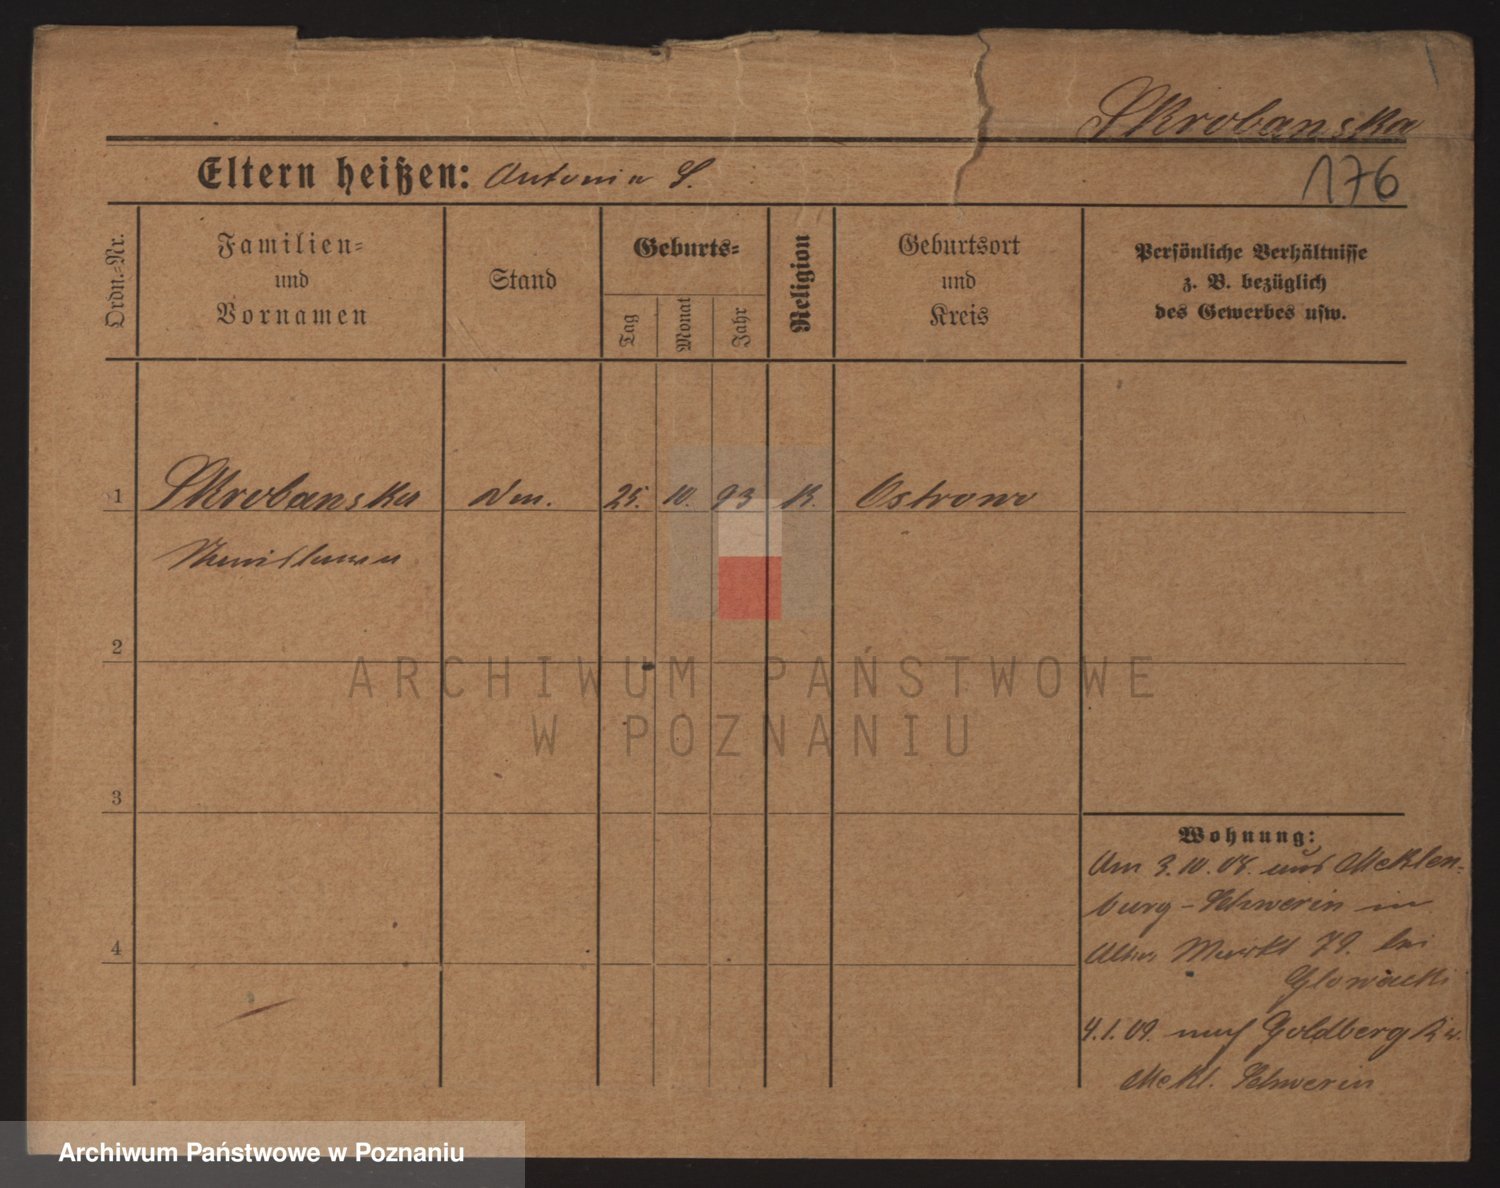 Skrobanska
Eltern heißen: Antonia S.
176
Ordn.=Nr.
Familien=
und
Vornamen
Stand
Geburts=
Tag
Monat
Jahr
Religion
Geburtsort
und
Kreis
Persönliche Verhältnisse
z. B. bezüglich
des Gewerbes usw.
1 Skrobanska 25. 10. 93 K. Ostrowo
Stanislawa
2
3
4
Wohnung:
Am 3.10.08. aus Meklen-
burg-Schwerin in
Alter Markt 79. bei
Glowacki
4.1.09. nach Goldberg
Mekl. Schwerin
ARCHIWUM PAŃSTWOWE
W POZNANIU
Archiwum Państwowe w Poznaniu